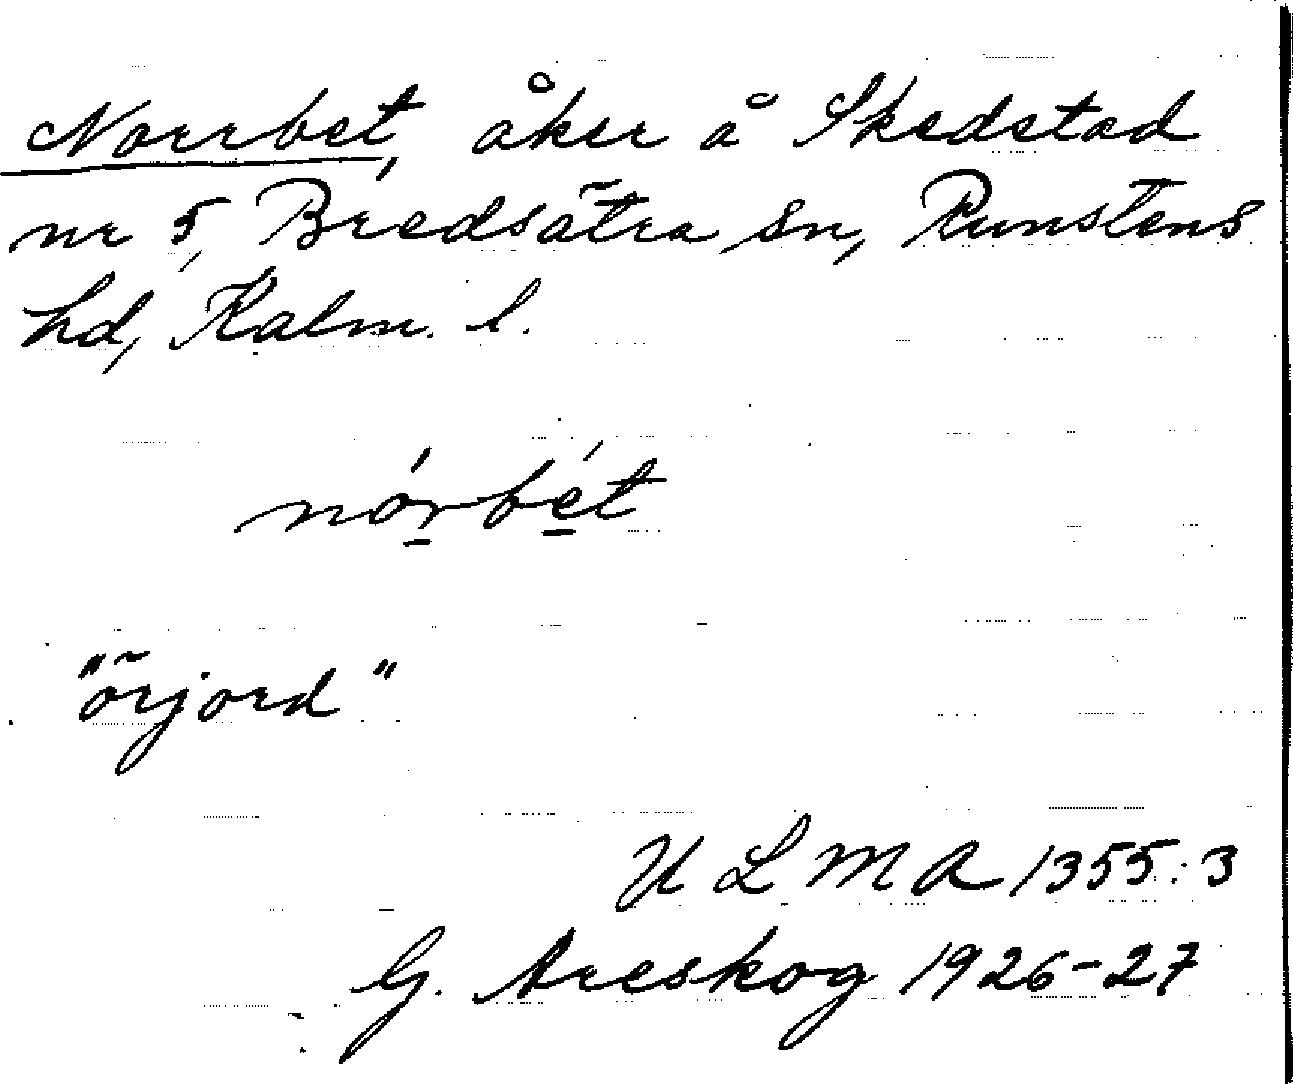 Norrbet, åker å Skedstad
nr 5, Bredsätra sn, Runstens
hd, Kalm. l.
nó̱rbé̱t
"örjord"
ULMA 1355:3
G. Areskog 1926-27